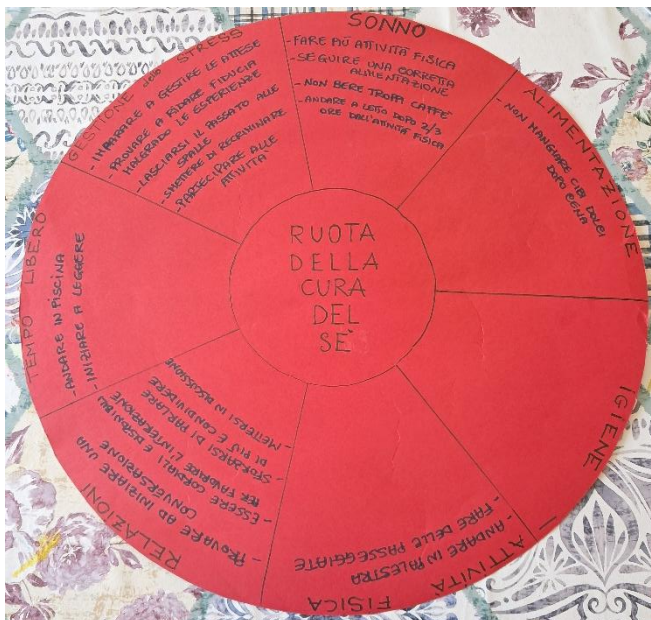 RUOTA
DELLA
CURA
DEL
SÈ
SONNO
- FARE PIÙ ATTIVITÀ FISICA
- SEGUIRE UNA CORRETTA
ALIMENTAZIONE
- NON BERE TROPPI CAFFÈ
- ANDARE A LETTO DOPO 2/3
ORE DALL'ATTIVITÀ FISICA
ALIMENTAZIONE
- NON MANGIARE CIBI DOLCI
DOPO CENA
IGIENE
ATTIVITÀ
FISICA
- ANDARE IN PALESTRA
- FARE DELLE PASSEGGIATE
RELAZIONI
- PROVARE AD INIZIARE UNA
CONVERSAZIONE
- ESSERE CORDIALI E DISPONIBILI
PER FAVORIRE L'INTERAZIONE
SFORZARSI DI PARLARE
DI PIÙ E CONDIVIDERE
- METTERSI IN DISCUSSIONE
TEMPO LIBERO
- ANDARE IN PISCINA
- INIZIARE A LEGGERE
GESTIONE STRESS
- IMPARARE A GESTIRE LE ATTESE
- PROVARE A RIDARE FIDUCIA
MALGRADO LE ESPERIENZE
- LASCIARSI IL PASSATO ALLE
SPALLE
- SMETTERE DI RECRIMINARE
- PARTECIPARE ALLE
ATTIVITÀ